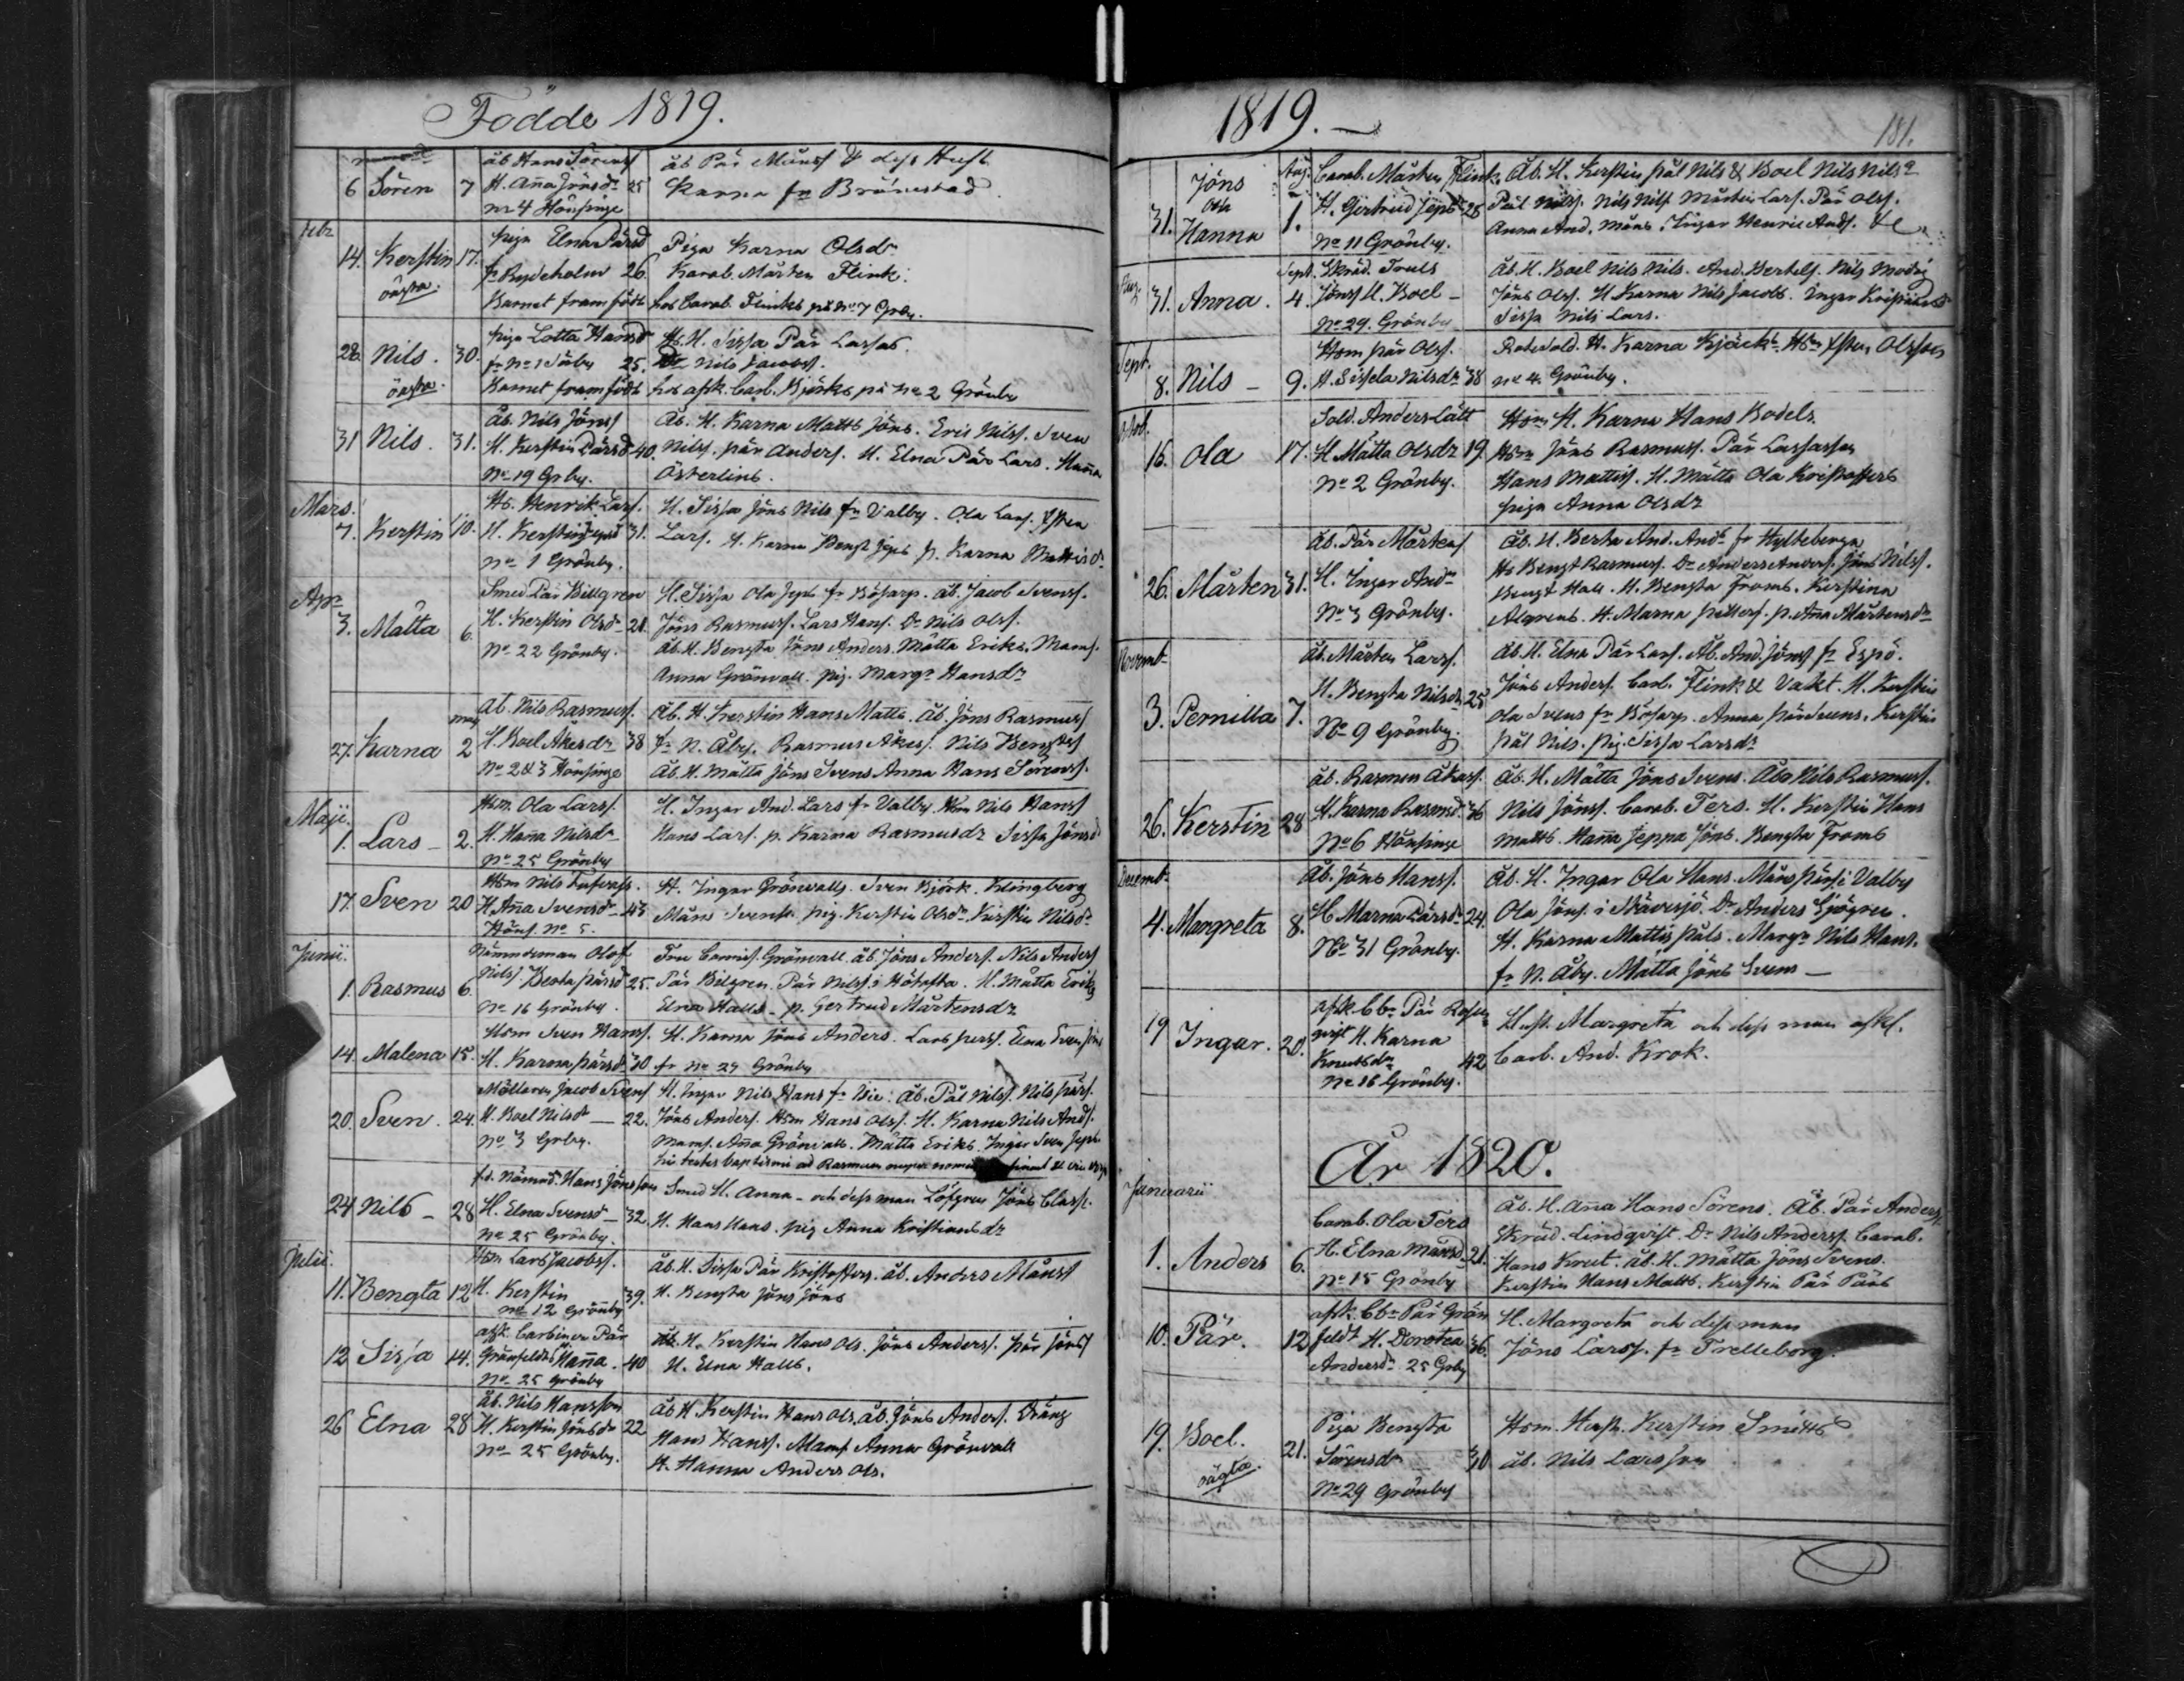 Födde 1819.
åb Hans Sörens/ åb Pär Måns/ & dess Hust
6 Sören 7 H. Aña Jönsdr 25 Karna fr Brönestad
nr 4 Hönsinge
Febr
piga Elna Pärsd Piga Karna Olsdr
14. Kerstin 17. fr Rydsholm 26. Karab. Mårten Flink.
oägta. Barnet framfödt hos Carab. Flinks på No 7 Grby.
piga Lotta Hansdr Hs. H. Sissa Pär Lassas.
28. Nils. 30. fr No 1 Säby 25. Nils Jacobs/.
oägta. Barnet framfödt hos afsk. Carl. Björks på No 2 Grönby
Åb. Nils Jöns/ Åb. H. Karna Matts Jöns. Eric Nils/. Sven
31 Nils. 31. H. Kerstin Pärsd 40. Nils/. pär Anders/. H. Elna Pär Lars. Haña
No 19 Grby. Österlins.
Mars. Hs. Henrik Lars/. H. Sissa Jöns Nils fr Valby. Ola Lars/. Esben
7. Kerstin 10. H. Kerstin Jepsd 31. Lars/. H. Karna Bengt Jeps p. Karna Mattisdr
No 1 Grönby.
Apr Smed Pär Billgren H. Sissa Ola Jeps fr Bösarp. åb. Jacob Svens/.
3. Mätta 6. H. Kerstin Olsdr 21. Jöns Rasmus/. Lars Hans/. Dr Nils Ols/.
No 22 Grönby. åb. H. Bengta Jöns Anders. Mätta Eriks. Mams.
Anna Grönvall. pig. Margr Hansdr
Åb. Nils Rasmus/. Åb. H. Kerstin Hans Matts. Åb. Jöns Rasmus/
27. Karna maj 2 H. Boel Åkesdr 38 fr N. Åby. Rasmus Åkes/. Nils Bengts/
No 2 & 3 Hönsinge Åb. H. Mätta Jöns Svens Anna Hans Sörens/.
Maji. Hsm. Ola Lars/. H. Ingar And. Lars fr Valby. Hsm Nils Hans/
1. Lars - 2. H. Haña Nilsdr Hans Lars/. p. Karna Rasmusdr Sissa Jönsd
No 25 Grönby
Hsm Nils H. Ingar Grönvalls. Sven Björk. Klingberg
17. Sven 20 H. Aña Svensdr 43 Måns Svens/. pig. Kerstin Olsdr Kerstin Nilsdr
Höns. No 5.
Junii. Nämndeman Olof Fru Grönvall. åb. Jöns Anders/. Nils Anders/
1. Rasmus 6. Nils/ Berta Pärsd 25. Pär Bilgren. Pär Nils/ i Mätta Eriks
No 16 Grönby. Elna Halls. p. Gertrud Mårtensdr
Hsm Sven Hans/. H. Karna Jöns Anders. Lars Pers/. Elna Sven
14. Malena 15. H. Karna Pärsdr 30 fr No 29 Grönby
Möllaren Jacob Svens/ H. Ingar Nils Hans fr Åb. Pål Nils/. Nils Pärs/.
20. Sven. 24. H. Boel Nilsdr 22. Jöns Anders/. Hsm Hans Ols/. H. Karna Nils And/.
No 3 Grby. Mams/. Aña Grönvall. Mätta Eriks. Ingar Sven Jeps
hi testes baptismi ad Rasmum
fd. Nämnd. Hans Jönsson Smed H. Anna - och dess man Löfgren Jöns Clas/.
24 Nils - 28 H. Elna Svensd 32. H. Hans Hans. pig Anna Kristiansdr
No 25 Grönby.
Julii. Hsm Lars Jacobs/. åb. H. Sissa Pär Kristoffers. åb. Anders Måns/
11. Bengta 12 H. Kerstin 39. H. Bengta Jöns Jöns
No 12 Grönby
afsk. Carbinr Pär åb. H. Kerstin Hans Ols. Jöns Anders/. Pär Jöns/
12 Sissa 14. Grönfeldts Haña. 40 H. Elna Halls.
No 25 Grönby
åb. Nils Hansson åb H Kerstin Hans Ols, åb. Jöns Anders/. Dräng
26 Elna 28 H. Kerstin Jönsdr 22 Hans Hans/. Mams/ Anna Grönvall
No 25 Grönby. H. Hanna Anders Ols.
1819. 181.
Jöns Aug. Carab. Mårten Flink. Åb. H. Kerstin Pål Nils & Boel Nils Nils
och 1. H. Gertrud Jepsdr 28 Pål Nils/. Nils Nils/ Mårten Lars/. Pär Ols/.
31. Hanna No 11 Grönby. Anna And. Måns. Ingar Henric Ands/. &c
Sept. Skräd. Truls Åb. H. Boel Nils Nils. And. Bertels/. Nils Modig
Aug. 31. Anna. 4. Jöns/ H. Boel - Jöns Ols/. H. Karna Nils Jacobs. Ingar
No 29. Grönby Sissa Nils Lars.
Sept. Hsm Pär Ols/. H. Karna Hsm Esbern Olsson
8. Nils - 9. H. Sissela Nilsdr 38 No 4. Grönby.
Octob. Sold. Anders Lätt Hsm H. Karna Hans Bodels.
16. Ola 17. H Mätta Olsdr 19. Hsm Jöns Rasmus/. Pär Lassasson
No 2 Grönby. Hans Mattis/. H. Mätta Ola Kristoffers
piga Anna Olsdr
Åb. Pär Mårtens/ Åb. H. Berta And. Ands fr Hylteberga
26. Mårten 31. H. Ingar Anddr Hs Bengt Rasmus/. Dr Anders Anders/. Jöns Nils/.
No 3 Grönby. Bengt Hall. H. Bengta Troms. Kerstina
Algrens. H. Marna Pellers/. p. Aña Mårtensdr
Novemb. Åb. Mårten Lars/. Åb. H. Elna Pär Lars/. Åb. And. Jöns/ fr Espö.
3. Pernilla 7. H. Bengta Nilsdr 25 Jöns Anders/. Carb. Flink & Vakt. H. Kerstin
No 9 Grönby. Ola Svens fr Bösarp. Anna Pär Svens. Kerstin
Pål Nils. Pig. Sissa Larsdr
åb. Rasmus Åkas/. Åb. H. Mätta Jöns Svens. Åbr Nils Rasmus/.
26. Kerstin 28 H. Karna Rasmd. 36 Nils Jöns/. Carab. Ters. H. Kerstin Hans
No 6 Hönsinge Matts. Haña Jeppa Jöns. Bengta Troms
Decemb. Åb. Jöns Hans/. Åb. H. Ingar Ola Hans. Måns Pärs/ i Valby
4. Margreta 8. H. Marna Pärsdr 24. Ola Jöns/. i Skåresjö. Dr Anders Sjögren.
No 31 Grönby. H. Karna Mattis Påls. Margr Nils Hans.
fr N. Åby. Mätta Jöns Svens -
afsk. Cbr Pär
19 Ingar. 20. H. Karna Hust. Margreta och dess man afsk.
Knutsdr 42 Carb. And. Krok.
No 16 Grönby.
År 1820.
Januarii
Carab. Ola Ters Åb. H. Aña Hans Sörens. Åb. Pär Anders/.
Skräd. Lindqvist. Dr Nils Anders/. Carab.
1. Anders 6. H. Elna Månsd 21. Hans Knut. åb. H. Mätta Jöns Svens.
No 15 Grönby Kerstin Hans Matts. Kerstin Pär Pärs
afsk. Cbr Pär Grön H. Margreta och dess man
10. Pär. 12 feldt H. Dorotea 36. Jöns Lars/. fr Trelleborg.
Andersdr 25 Grby
Piga Bengta Hsm. Hust. Kerstin Smitts
19. Boel. 21. Sörensdr 30 åb. Nils Larsson
oägta. No 29 Grönby